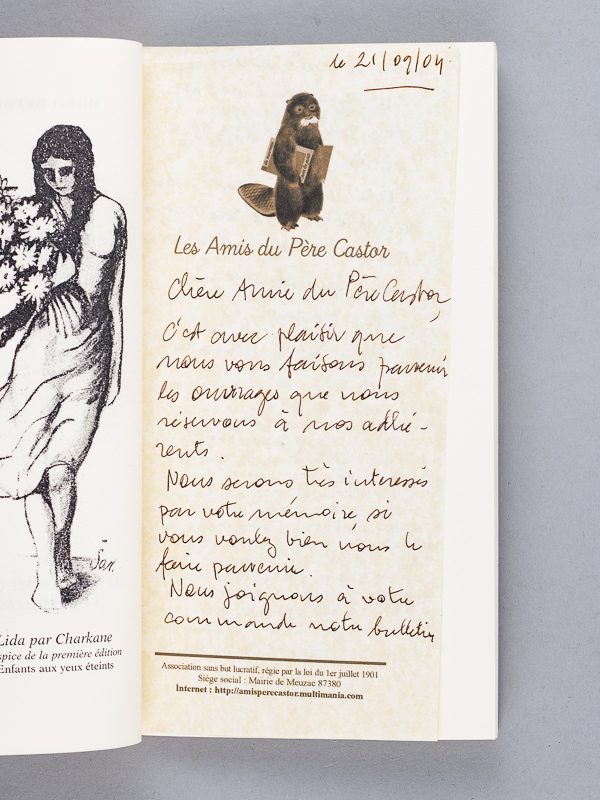 Lida par Charkane
spice de la première édition
Enfants aux yeux éteints
le 21/09/04
Les Amis du Père Castor
Chère Amie du Père Castor,
C'est avec plaisir que
nous vous faisons parvenir
les ouvrages que nous
réservons à nos adhé-
rents.
Nous serons très intéressés
par votre mémoire, si
vous voulez bien nous le
faire parvenir.
Nous joignons à votre
commande notre bulletin
Association sans but lucratif, régie par la loi du 1er juillet 1901
Siège social : Mairie de Meuzac 87380
Internet : http://amisperecastor.multimania.com